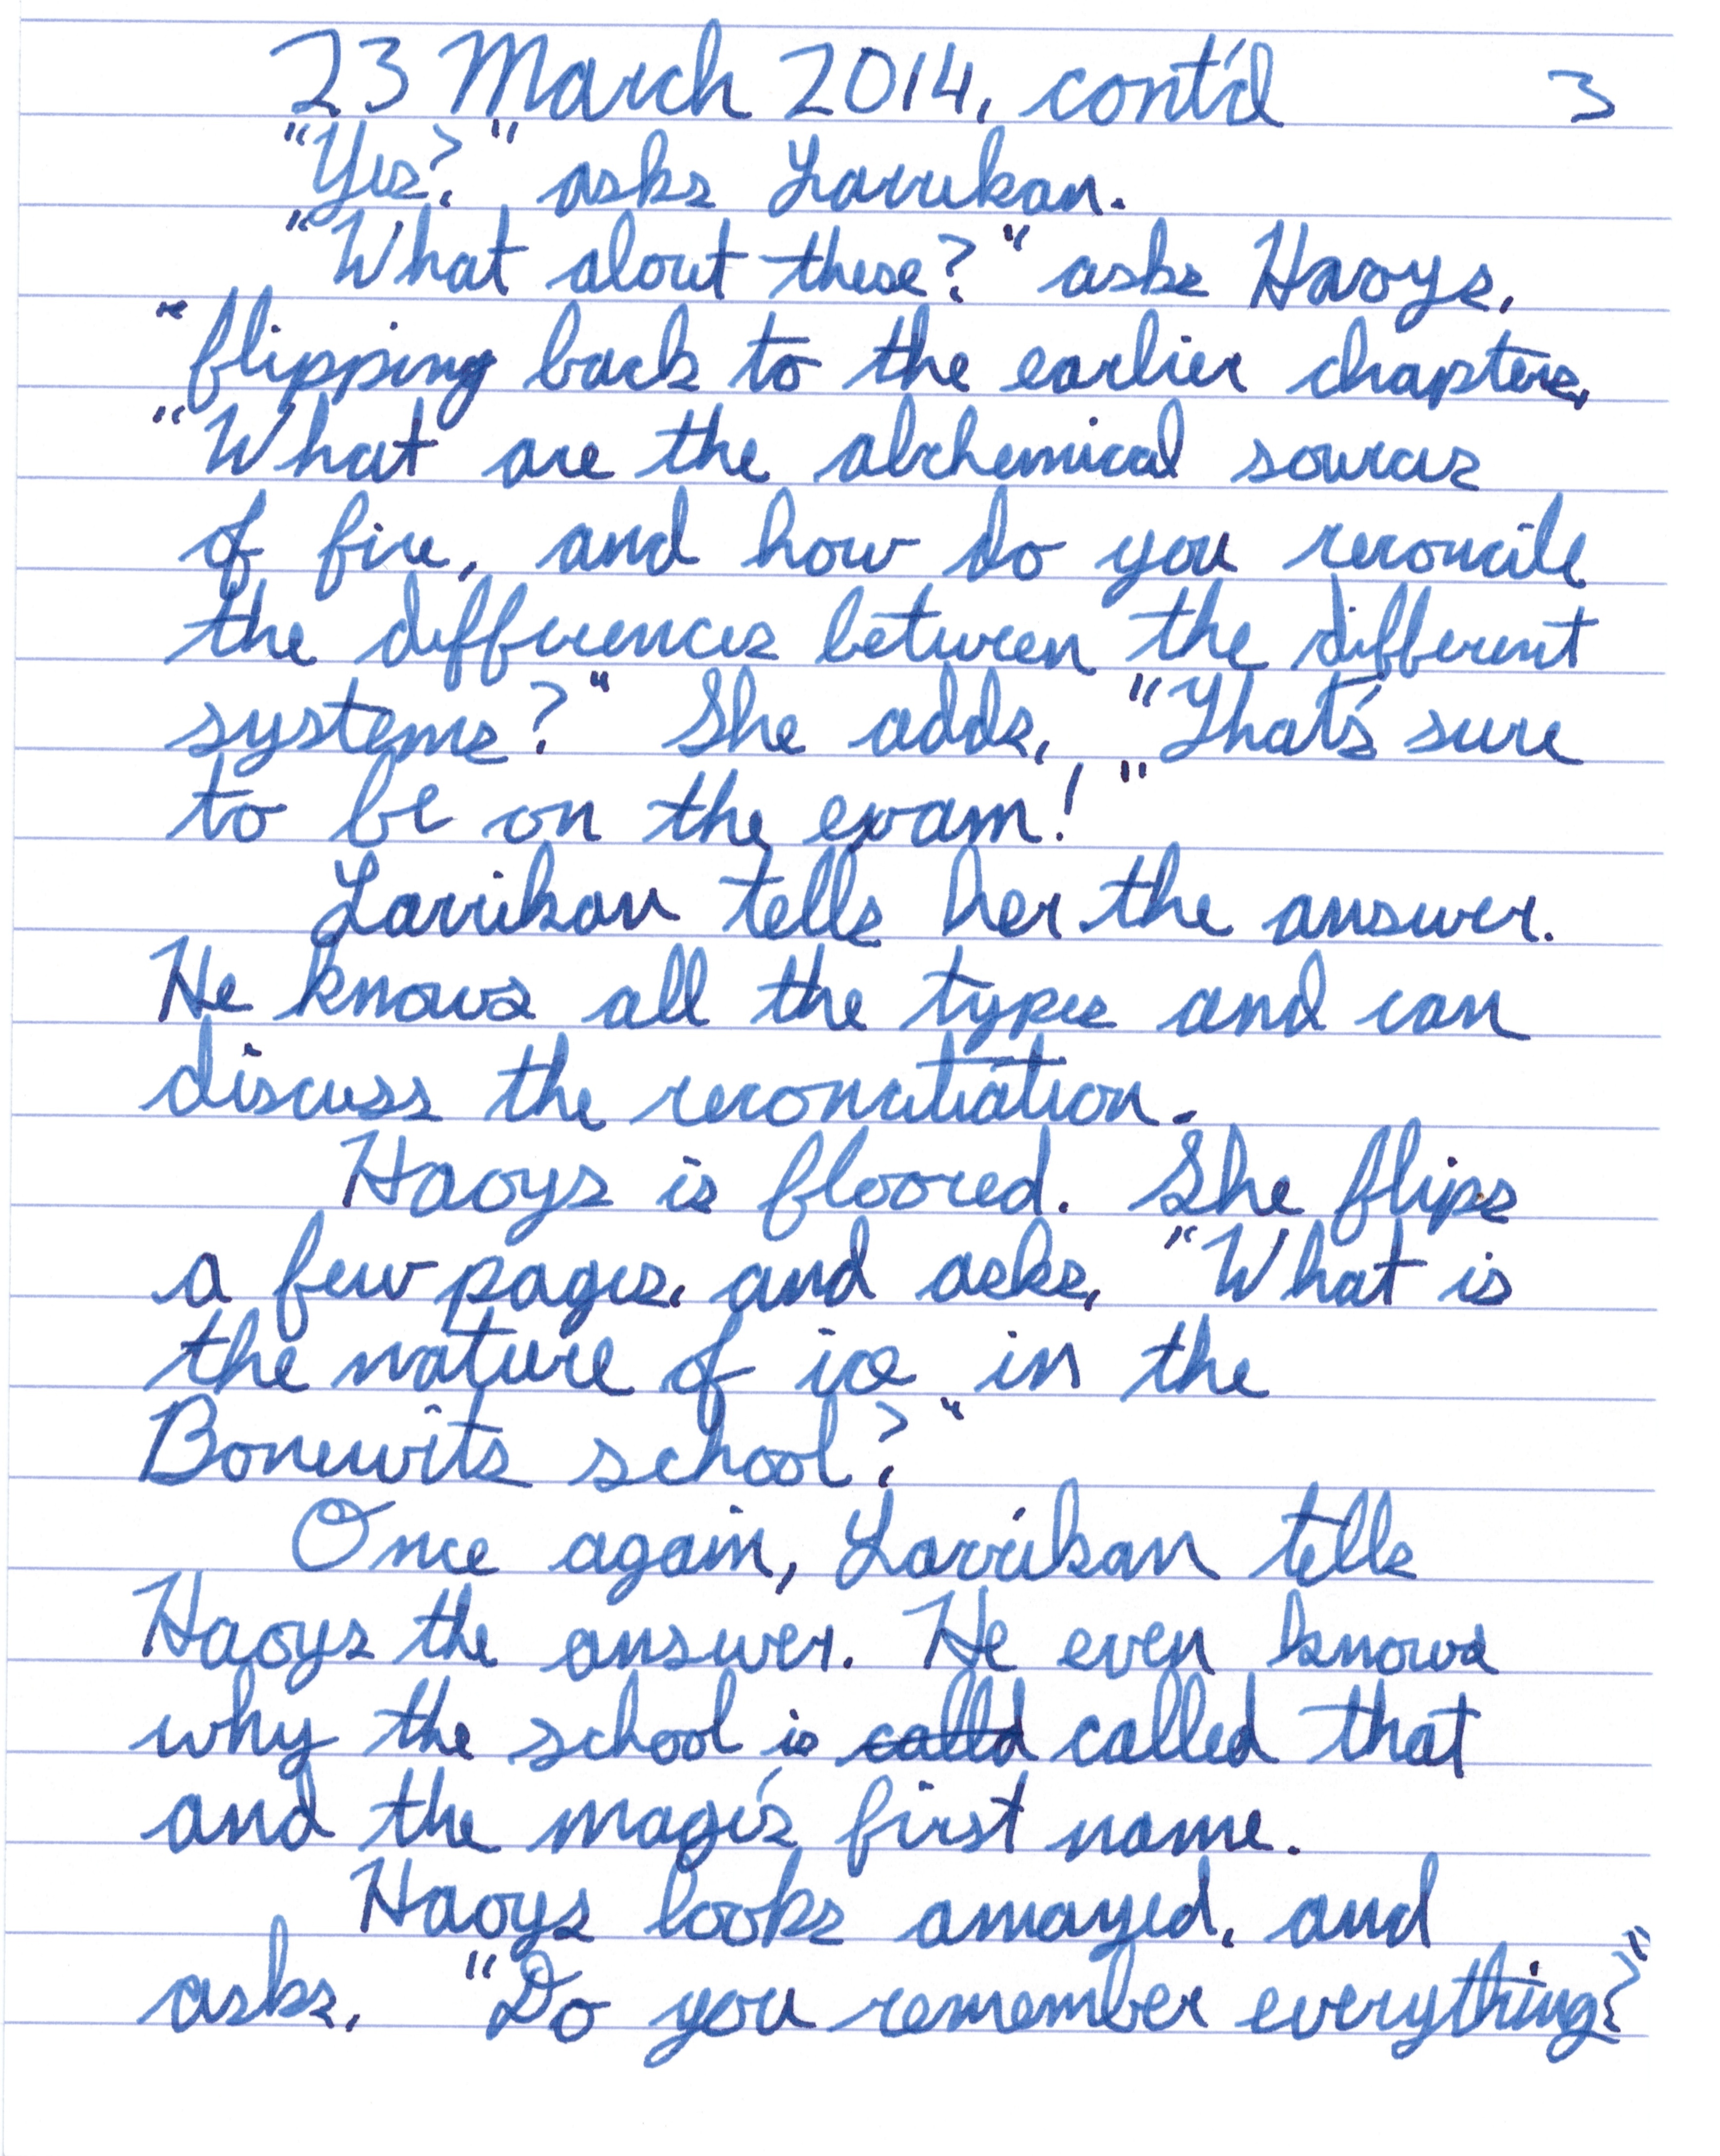 23 March 2014, cont'd 3
"Yes?" asks Larrikan.
"What about these?" asks Haoys,
"flipping back to the earlier chapters,
"What are the alchemical sources
of fire, and how do you reconcile
the differences between the different
systems?" She adds, "That's sure
to be on the exam!"
Larrikan tells her the answer.
He knows all the types and can
discuss the reconciliation.
Haoys is floored. She flips
a few pages, and asks, "What is
the nature of ice in the
Bonewits school?"
Once again, Larrikan tells
Haoys the answer. He even knows
why the school is calld called that
and the mage's first name.
Haoys looks amazed, and
asks, "Do you remember everything?"